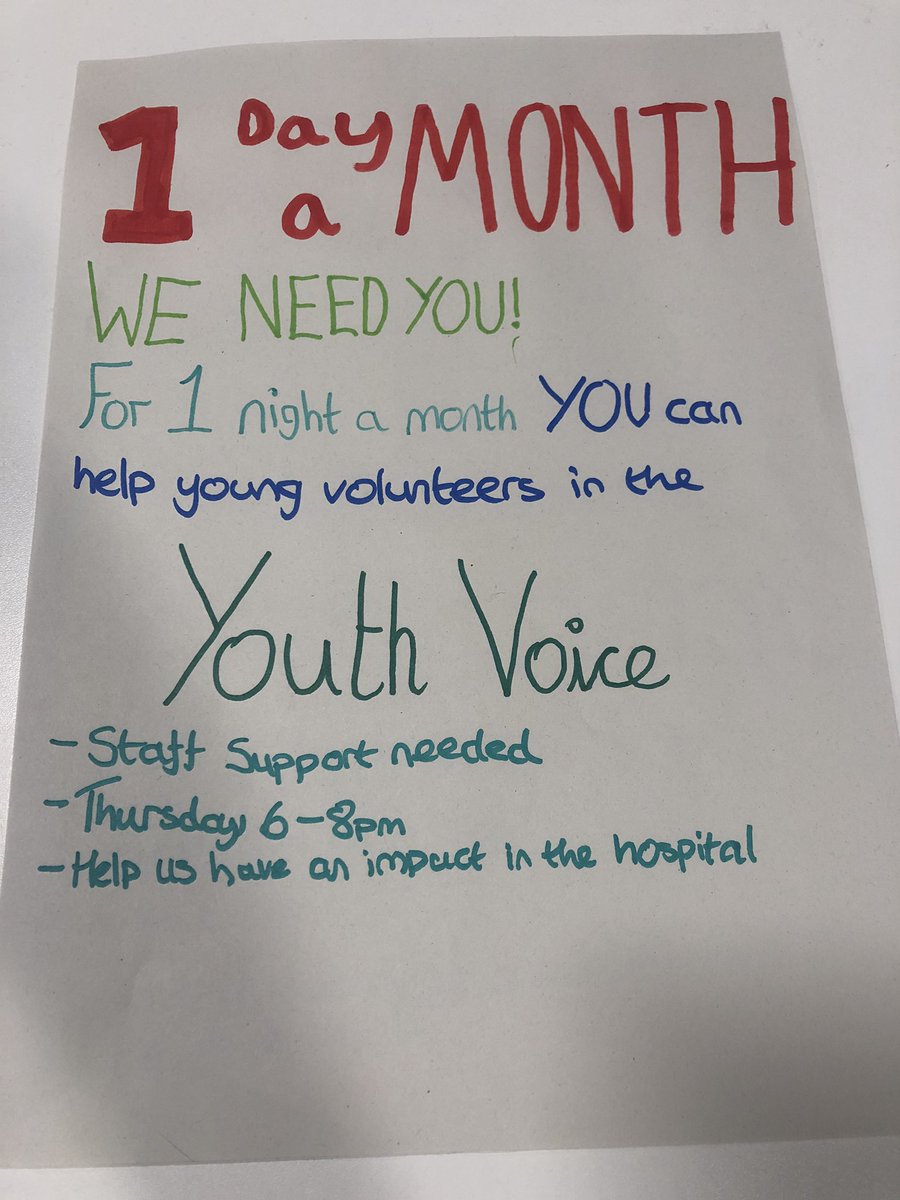 1 Day a MONTH
WE NEED YOU!
For 1 night a month YOU can
help young volunteers in the
Youth Voice
- Staff Support needed
- Thursday 6-8pm
- Help us have an impact in the hospital